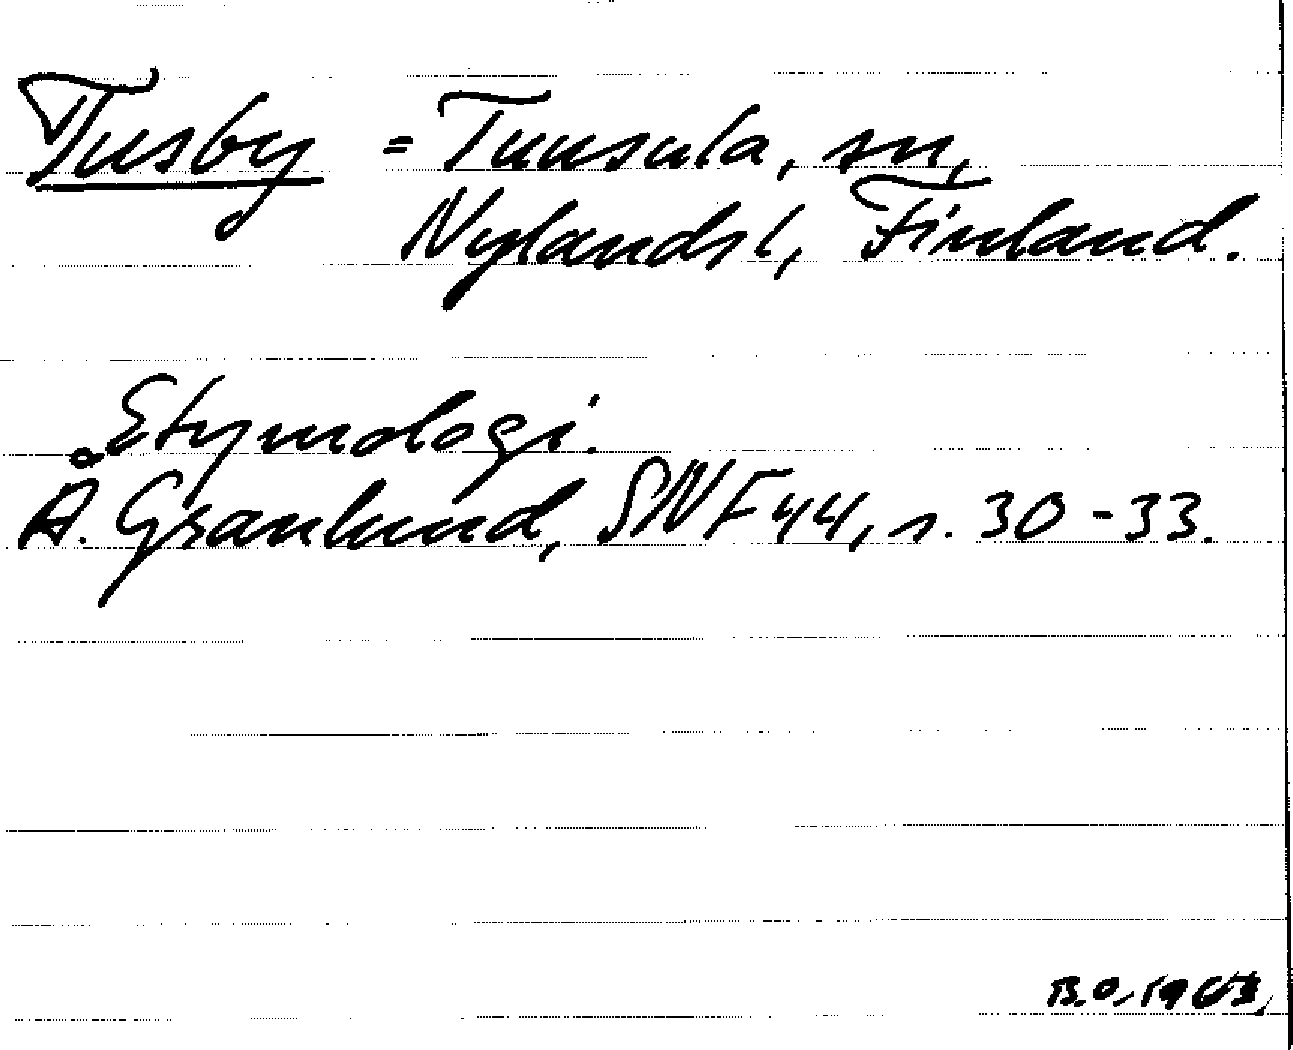 Tusby = Tuusula, sn,
Nylandsl, Finland.
Etymologi.
Å. Granlund, SNF 44, s. 30-33.
B.O.